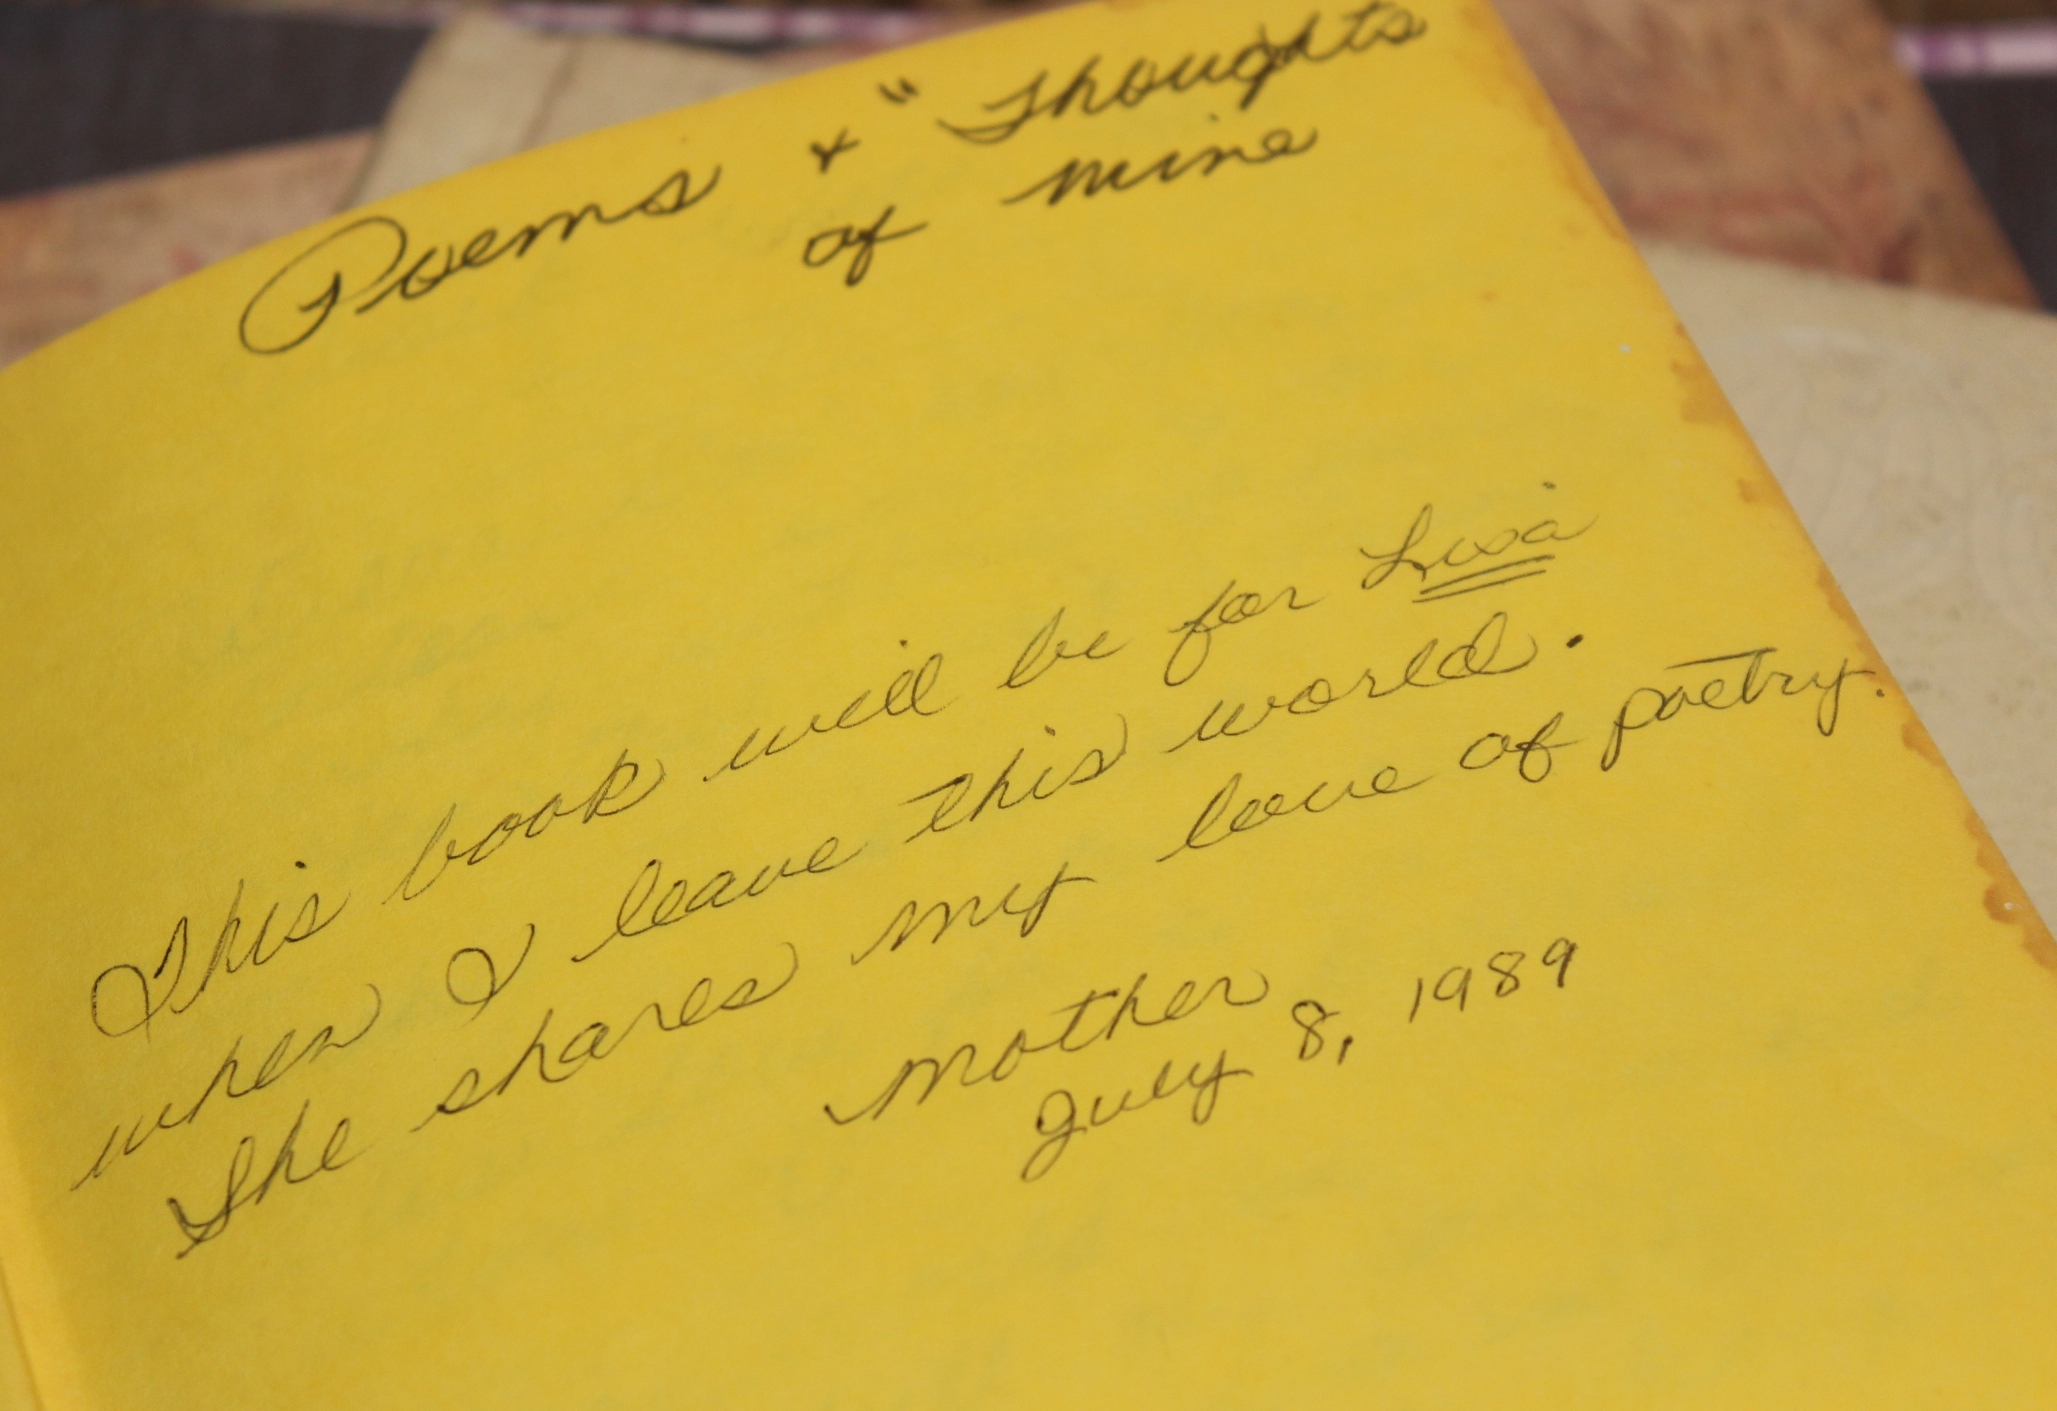 Poems & "Thoughts
of mine
This book will be for Lisa
when I leave this world.
She shares my love of poetry.
Mother
July 8, 1989